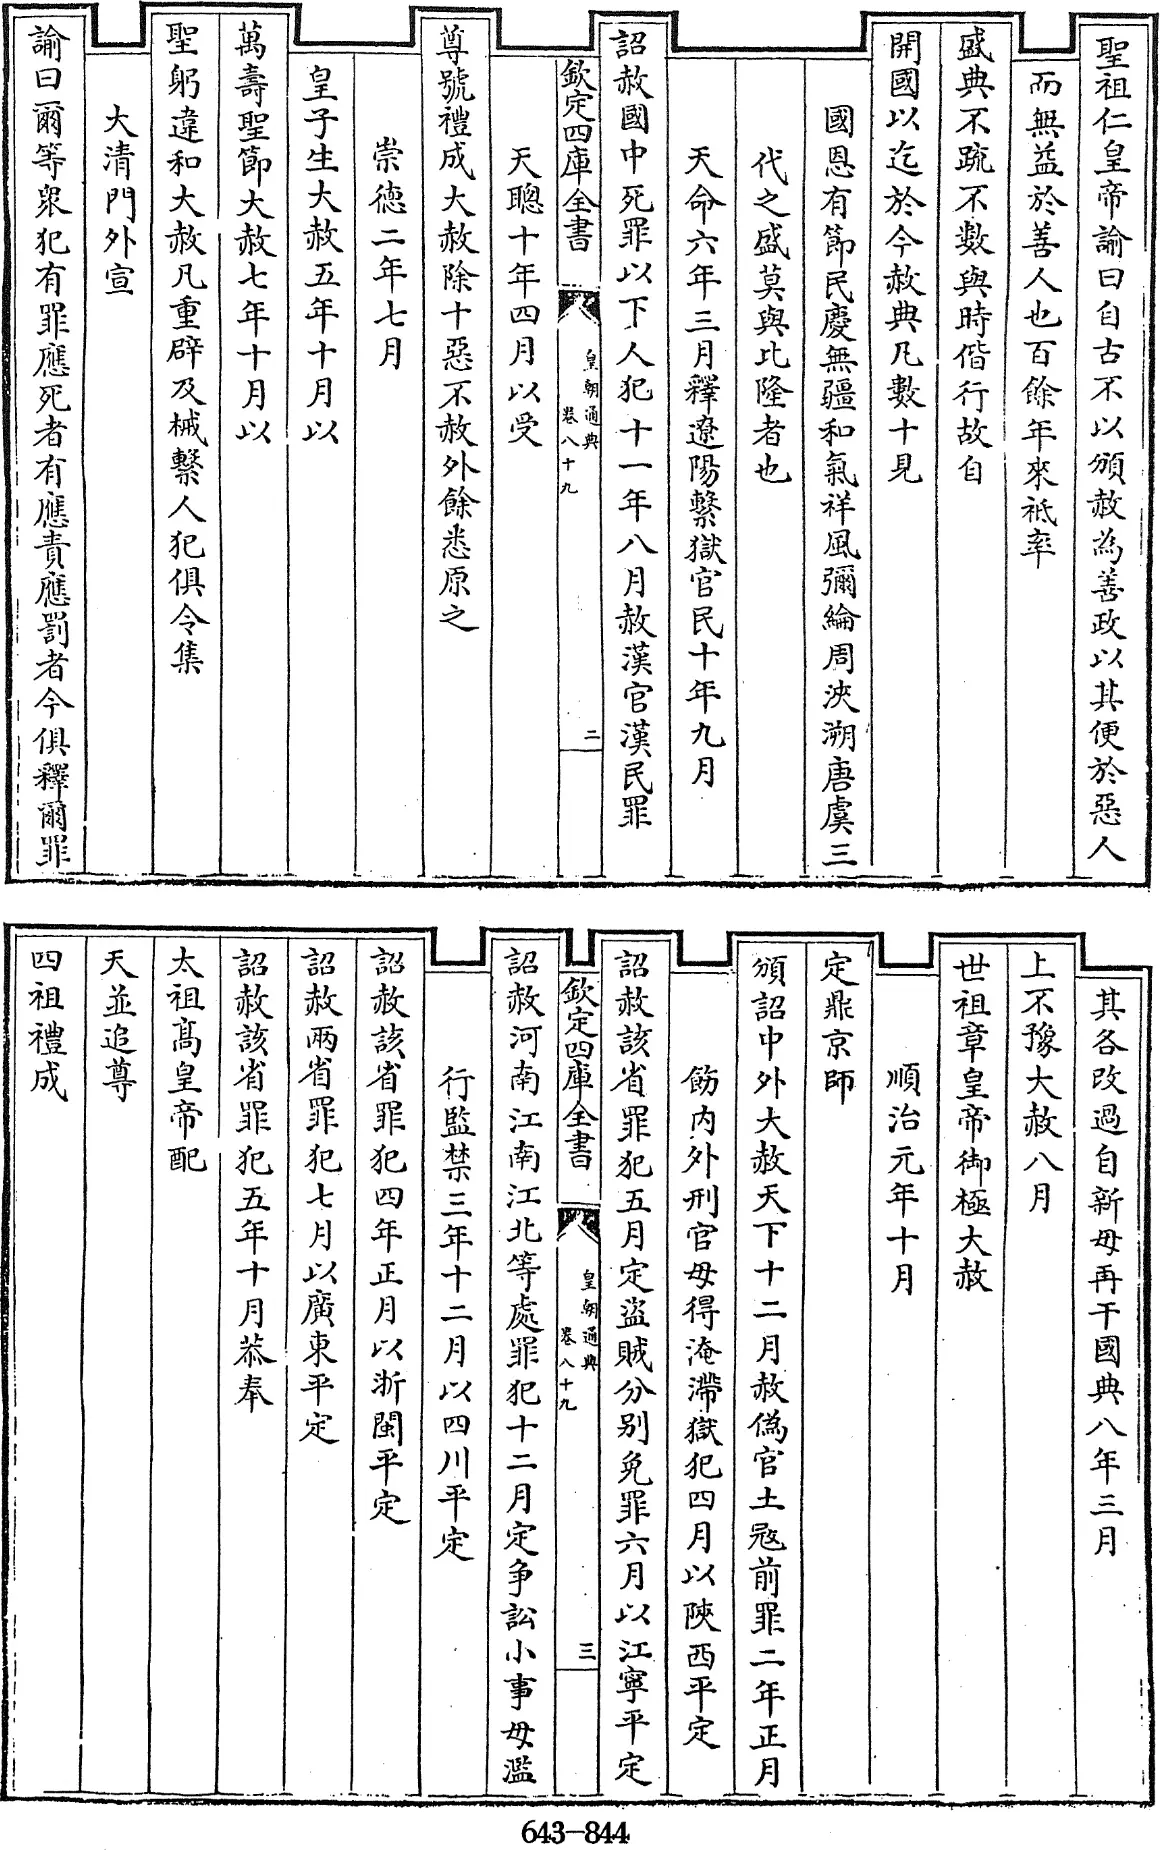 聖祖仁皇帝諭曰自古不以頒赦為善政以其便於惡人
而無益於善人也百餘年來祗率
盛典不疏不數與時偕行故自
開國以迄於今赦典凡數十見
國恩有節民慶無疆和氣祥風彌綸周浹溯唐虞三
代之盛莫與比隆者也
天命六年三月釋遼陽繫獄官民十年九月
詔赦國中死罪以下人犯十一年八月赦漢官漢民罪
欽定四庫全書
皇朝通典
卷八十九
二
天聰十年四月以受
尊號禮成大赦除十惡不赦外餘悉原之
崇德二年七月
皇子生大赦五年十月以
萬壽聖節大赦七年十月以
聖躬違和大赦凡重辟及械繫人犯俱令集
大清門外宣
諭曰爾等衆犯有罪應死者有應責應罰者今俱釋爾罪
其各改過自新毋再干國典八年三月
上不豫大赦八月
世祖章皇帝御極大赦
順治元年十月
定鼎京師
頒詔中外大赦天下十二月赦偽官土寇前罪二年正月
飭内外刑官毋得淹滯獄犯四月以陝西平定
詔赦該省罪犯五月定盜賊分别免罪六月以江寧平定
欽定四庫全書
皇朝通典
卷八十九
三
詔赦河南江南江北等處罪犯十二月定争訟小事毋濫
行監禁三年十二月以四川平定
詔赦該省罪犯四年正月以浙閩平定
詔赦兩省罪犯七月以廣東平定
詔赦該省罪犯五年十月恭奉
太祖高皇帝配
天並追尊
四祖禮成
643-844